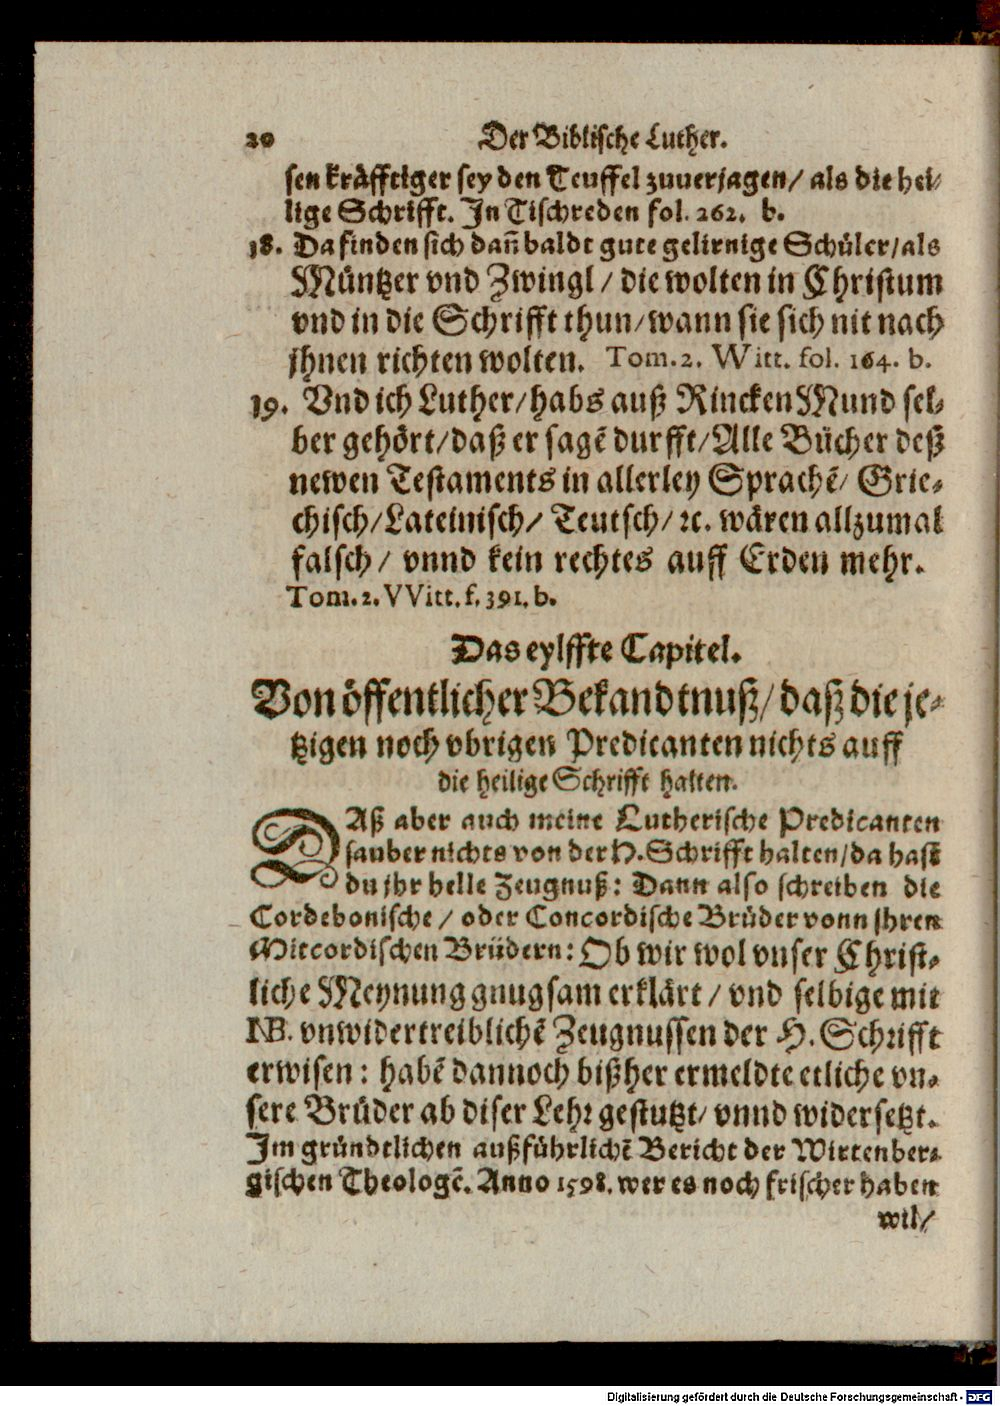 20 Der Biblische Luther.
sen kräfftiger sey den Teuffel zuuerjagen/ als die hei⸗
lige Schrifft. In Tischreden fol. 262. b.
18. Da finden sich dañ baldt gute gelirnige Schüler/als
Müntzer vnd Zwingl/ die wolten in Christum
vnd in die Schrifft thun/wann sie sich nit nach
jhnen richten wolten. Tom. 2. Witt. fol. 164. b.
19. Vnd ich Luther/habs auß Rincken Mund sel⸗
ber gehört/daß er sagẽ durfft/Alle Bücher deß
newen Testaments in allerley Sprachẽ/ Grie⸗
chisch/Lateinisch/ Teutsch/ ꝛc. wären allzumal
falsch/ vnnd kein rechtes auff Erden mehr.
Tom. 2. VVitt. f. 391. b.
Das eylffte Capitel.
Von öffentlicher Bekandtnuß/daß die je⸗
tzigen noch vbrigen Predicanten nichts auff
die heilige Schrifft halten.
DAß aber auch meine Lutherische Predicanten
sauber nichts von der H. Schrifft halten/da hast
du jhr helle Zeugnuß: Dann also schreiben die
Cordebonische/ oder Concordische Brüder vonn jhren
Mitcordischen Brüdern: Ob wir wol vnser Christ⸗
liche Meynung gnugsam erklärt/ vnd selbige mit
NB. vnwidertreiblichẽ Zeugnussen der H. Schrifft
erwisen: habẽ dannoch bißher ermeldte etliche vn⸗
sere Brüder ab diser Lehꝛ gestutzt/ vnnd widersetzt.
Im gründtlichen außführlichẽ Bericht der Wirtenber⸗
gischen Theologẽ. Anno 1598. wer es noch frischer haben
wil/
Digitalisierung gefördert durch die Deutsche Forschungsgemeinschaft - DFG